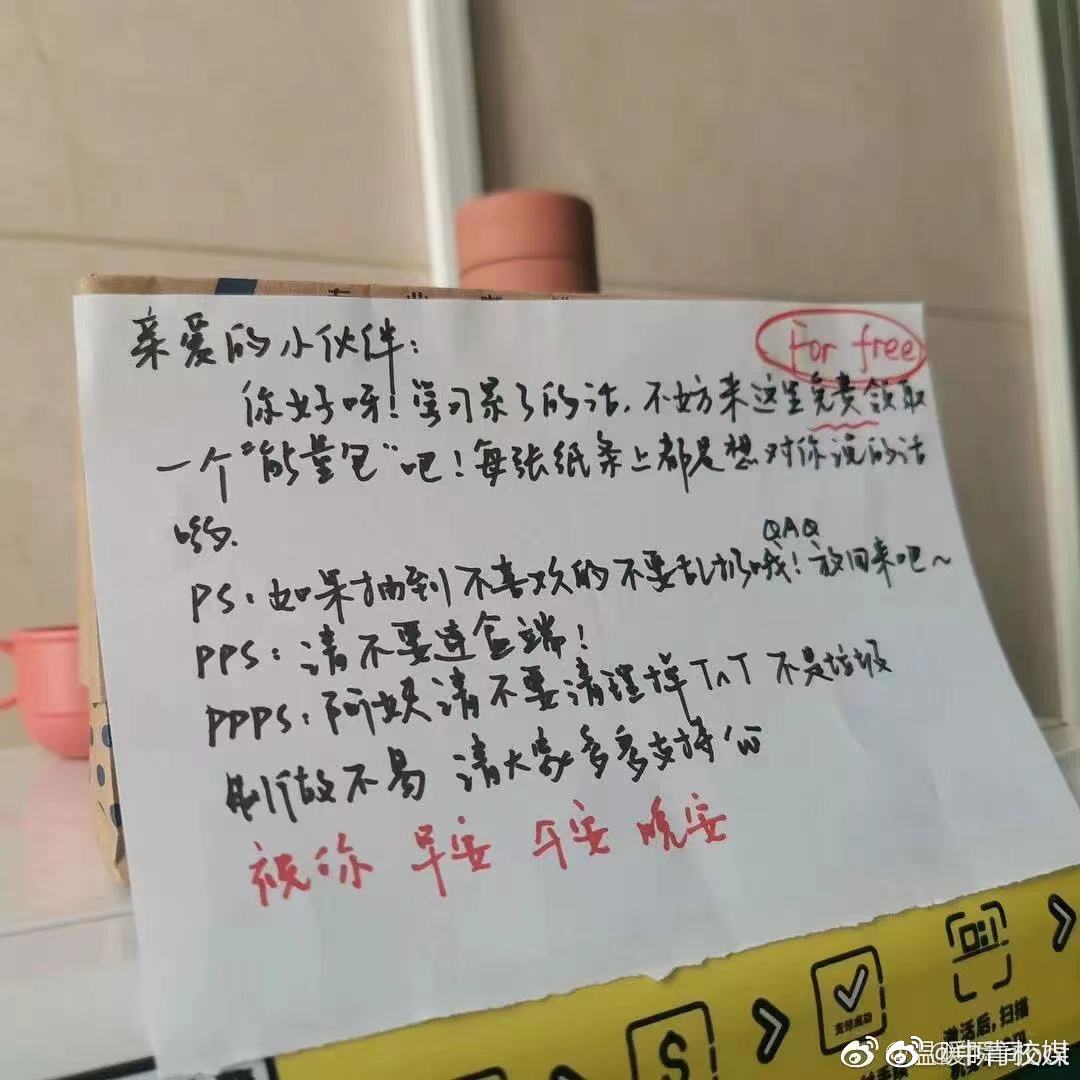 For free
亲爱的小伙伴：
你好呀！学习累了的话，不妨来这里免费领取
一个“能量包”吧！每张纸条上都是想对你说的话
哟.
QAQ
PS：如果抽到不喜欢的不要乱扔哦！放回来吧～
PPS：请不要连盒端！
PPPS：阿姨请不要清理掉TnT 不是垃圾
制作不易 请大家多多支持
祝你 早安 午安 晚安
支付成功
激活后，扫描